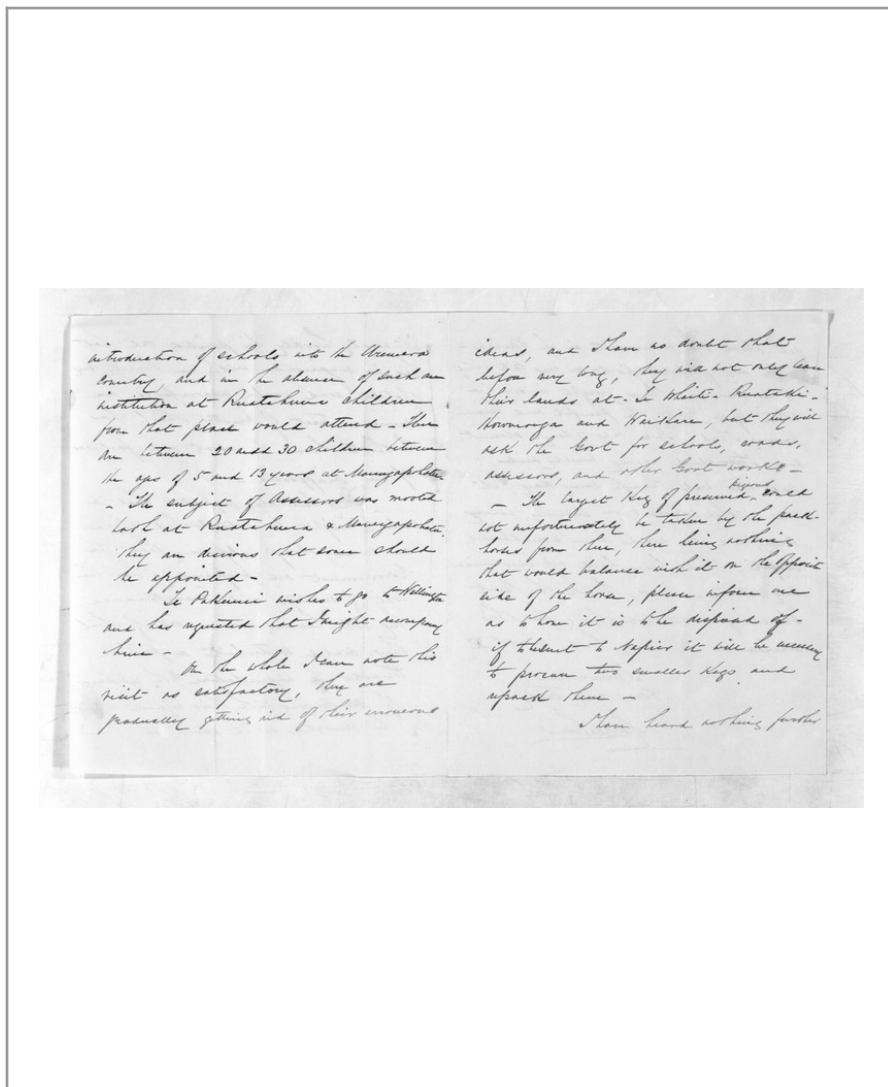 introduction of schools into the Urewera
country, and in the absence of such an
institution at Ruatahuna children
from that place would attend - There
are between 20 and 30 children between
the ages of 5 and 13 years at Maungapohatu
- The subject of Assessors was mooted
both at Ruatahuna & Maungapohatu,
they are desirous that some should
be appointed -
Te Purewa wishes to go to Wellington
and has requested that I might accompany
him -
On the whole I can note this
visit as satisfactory, they are
gradually getting rid of their erroneous
ideas, and I have no doubt that
before very long, they will not only lease
their lands at - Te Whiti - Ruataki -
and Waikare, but they will
ask the Govt for schools, roads,
assessors, and other Govt works -
- The largest Keg of preserved pigeons could
not unfortunately be taken by the pack-
horses from here, there being nothing
that would balance with it on the opposite
side of the horse, please inform me
as to how it is to be disposed of -
if to be sent to Napier it will be necessary
to procure two smaller Kegs and
repack them -
I have heard nothing further